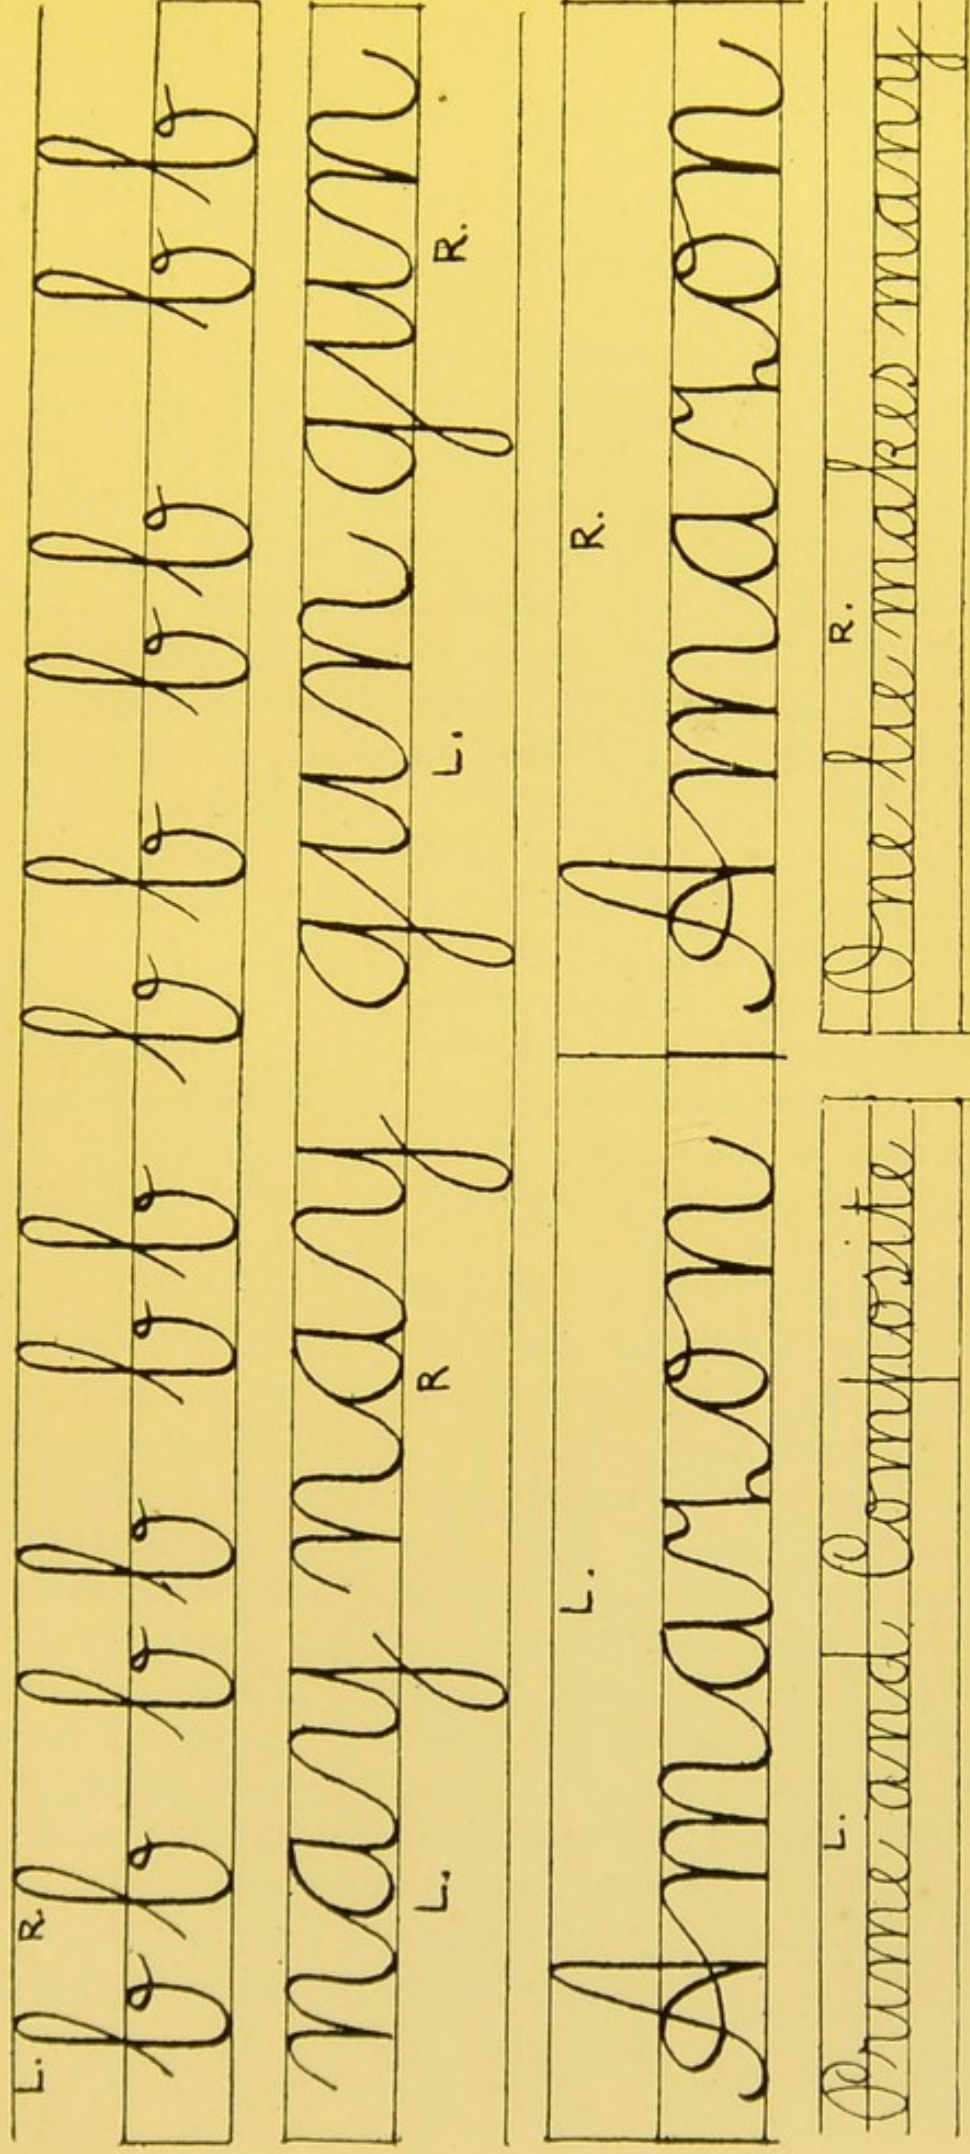 L. R
b b b b b b b b b b b b
nay nay gun gun
L. R L. R.
L. R.
Amaron Amaron
L. R.
Prime and Composite One lie makes many